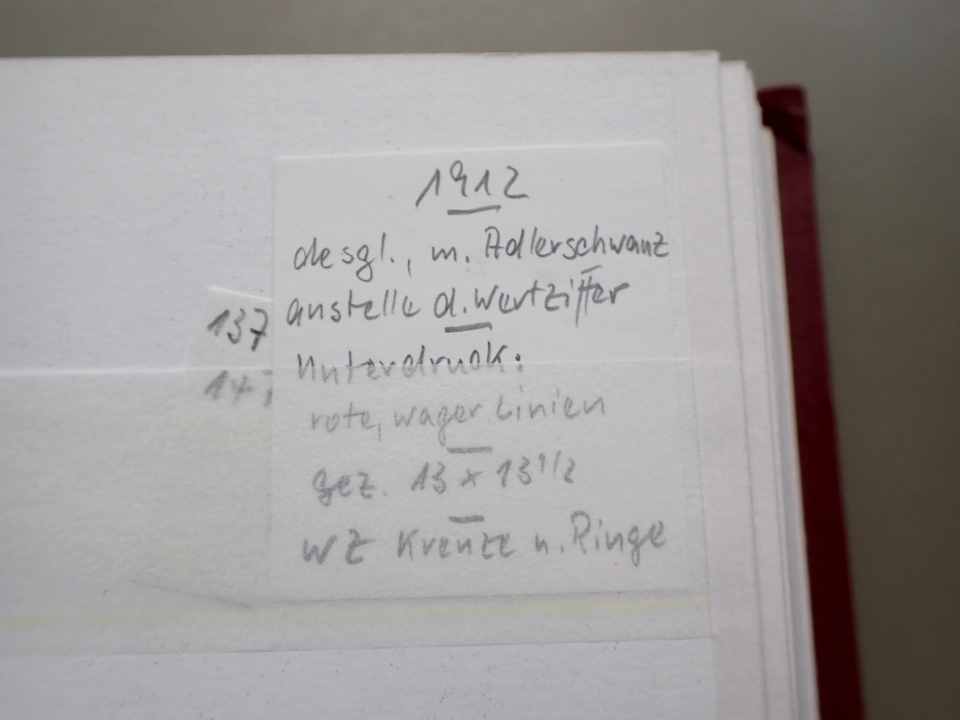 1912
desgl., m. Adlerschwanz
anstelle d. Wertziffer
137
Unterdruck:
rote, wager. Linien
gez. 13 x 13 1/2
WZ Kreuze u. Ringe